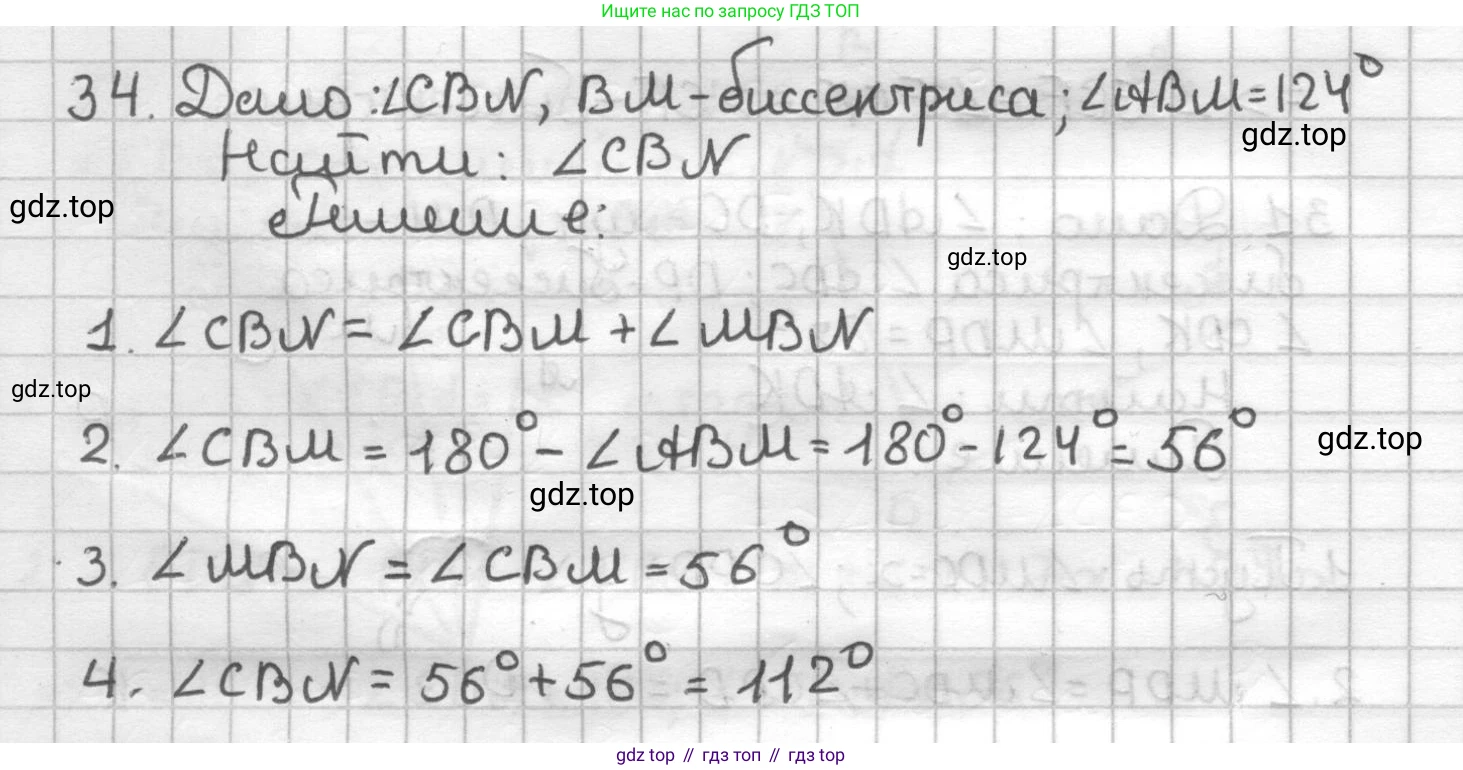 Ищите нас по запросу ГДЗ ТОП
34. Дано: ∠CBN, BM - биссектриса; ∠ABM = 124°
gdz.top
Найти: ∠CBN
gdz.top
Решение:
gdz.top
1. ∠CBN = ∠CBM + ∠MBN
gdz.top
2. ∠CBM = 180° - ∠ABM = 180° - 124° = 56°
gdz.top
gdz.top
3. ∠MBN = ∠CBM = 56°
4. ∠CBN = 56° + 56° = 112°
gdz top // гдз топ // гдз top